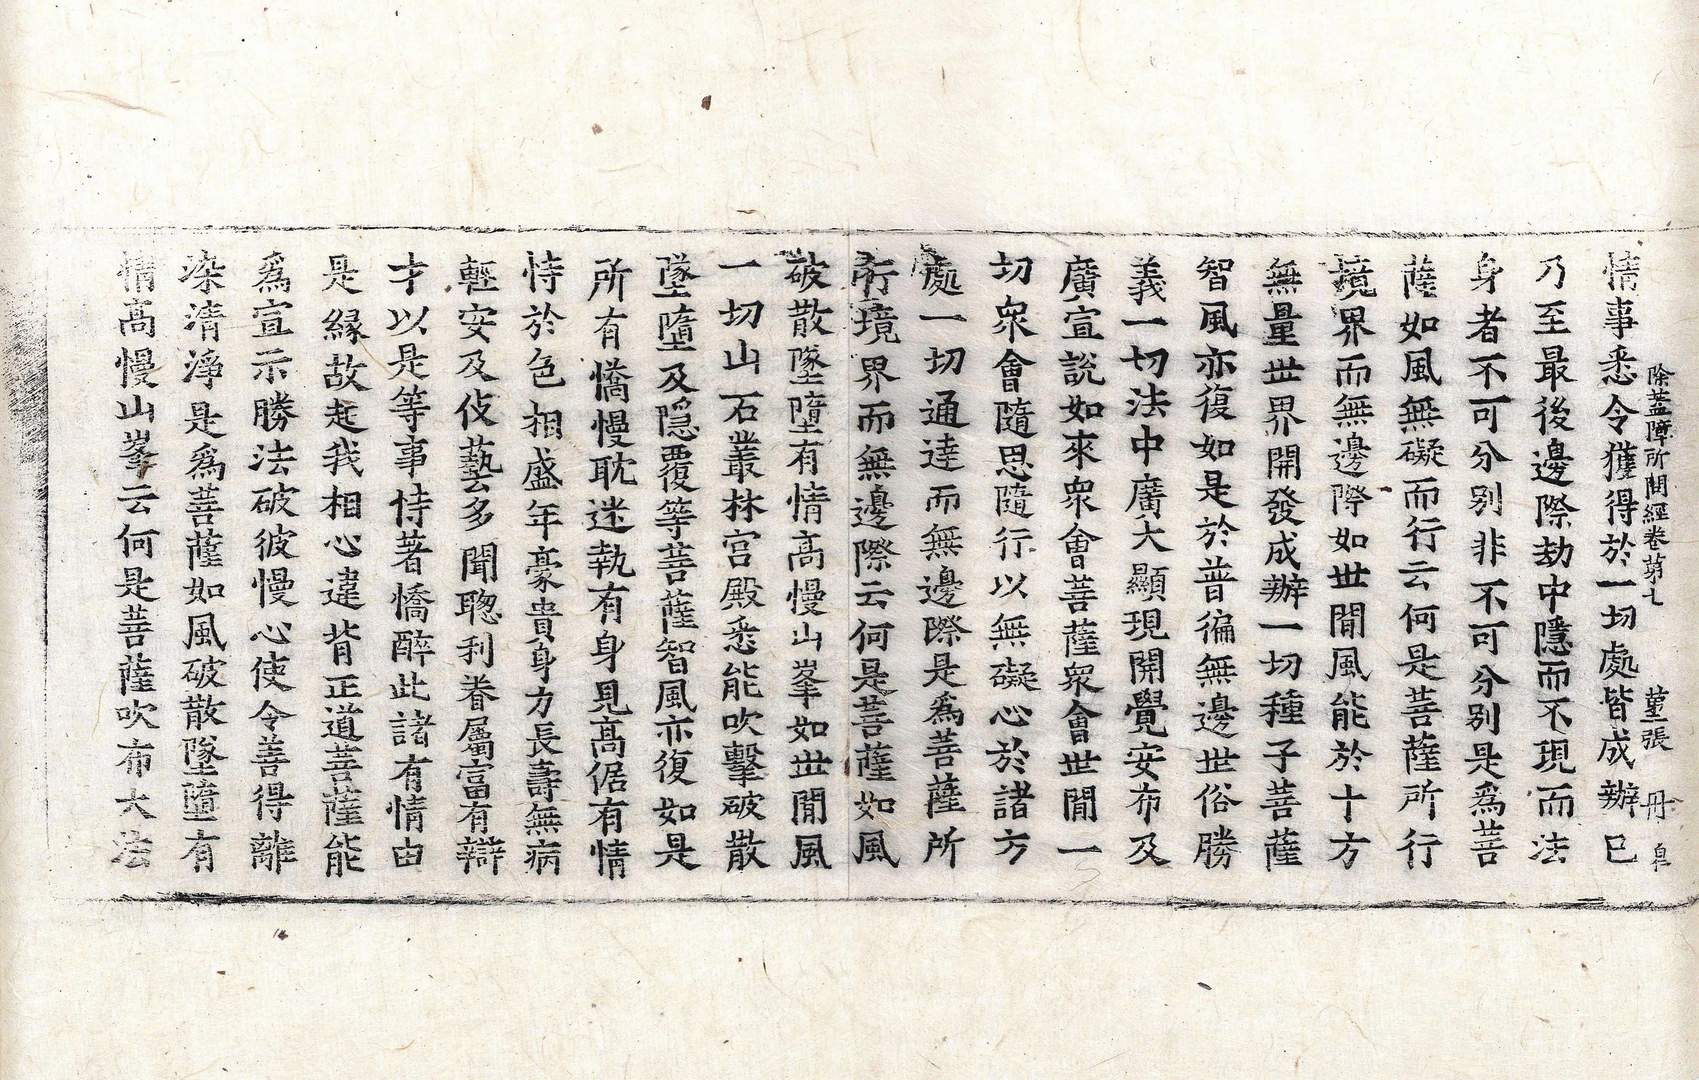 除蓋障所問經卷第七 張 冊 皇
情事悉令獲得於一切處皆成辦已
乃至最後邊際劫中隱而不現而法
身者不可分別非不可分別是爲菩
薩如風無礙而行云何是菩薩所行
境界而無邊際如世間風能於十方
無量世界開發成辦一切種子菩薩
智風亦復如是於普徧無邊世俗勝
義一切法中廣大顯現開覺安布及
廣宣說如來衆會菩薩衆會世間一
切衆會隨思隨行以無礙心於諸方
處一切通達而無邊際是爲菩薩所
行境界而無邊際云何是菩薩如風
破散墜墮有情高慢山峯如世間風
一切山石叢林宮殿悉能吹擊破散
墜墮及隱覆等菩薩智風亦復如是
所有憍慢耽迷執有身見高倨有情
恃於色相盛年豪貴身力長壽無病
輕安及伎藝多聞聰利眷屬富有辯
才以是等事恃著憍醉此諸有情由
是緣故起我相心違背正道菩薩能
爲宣示勝法破彼慢心使令善得離
染清淨是爲菩薩如風破散墜墮有
情高慢山峯云何是菩薩吹布大法